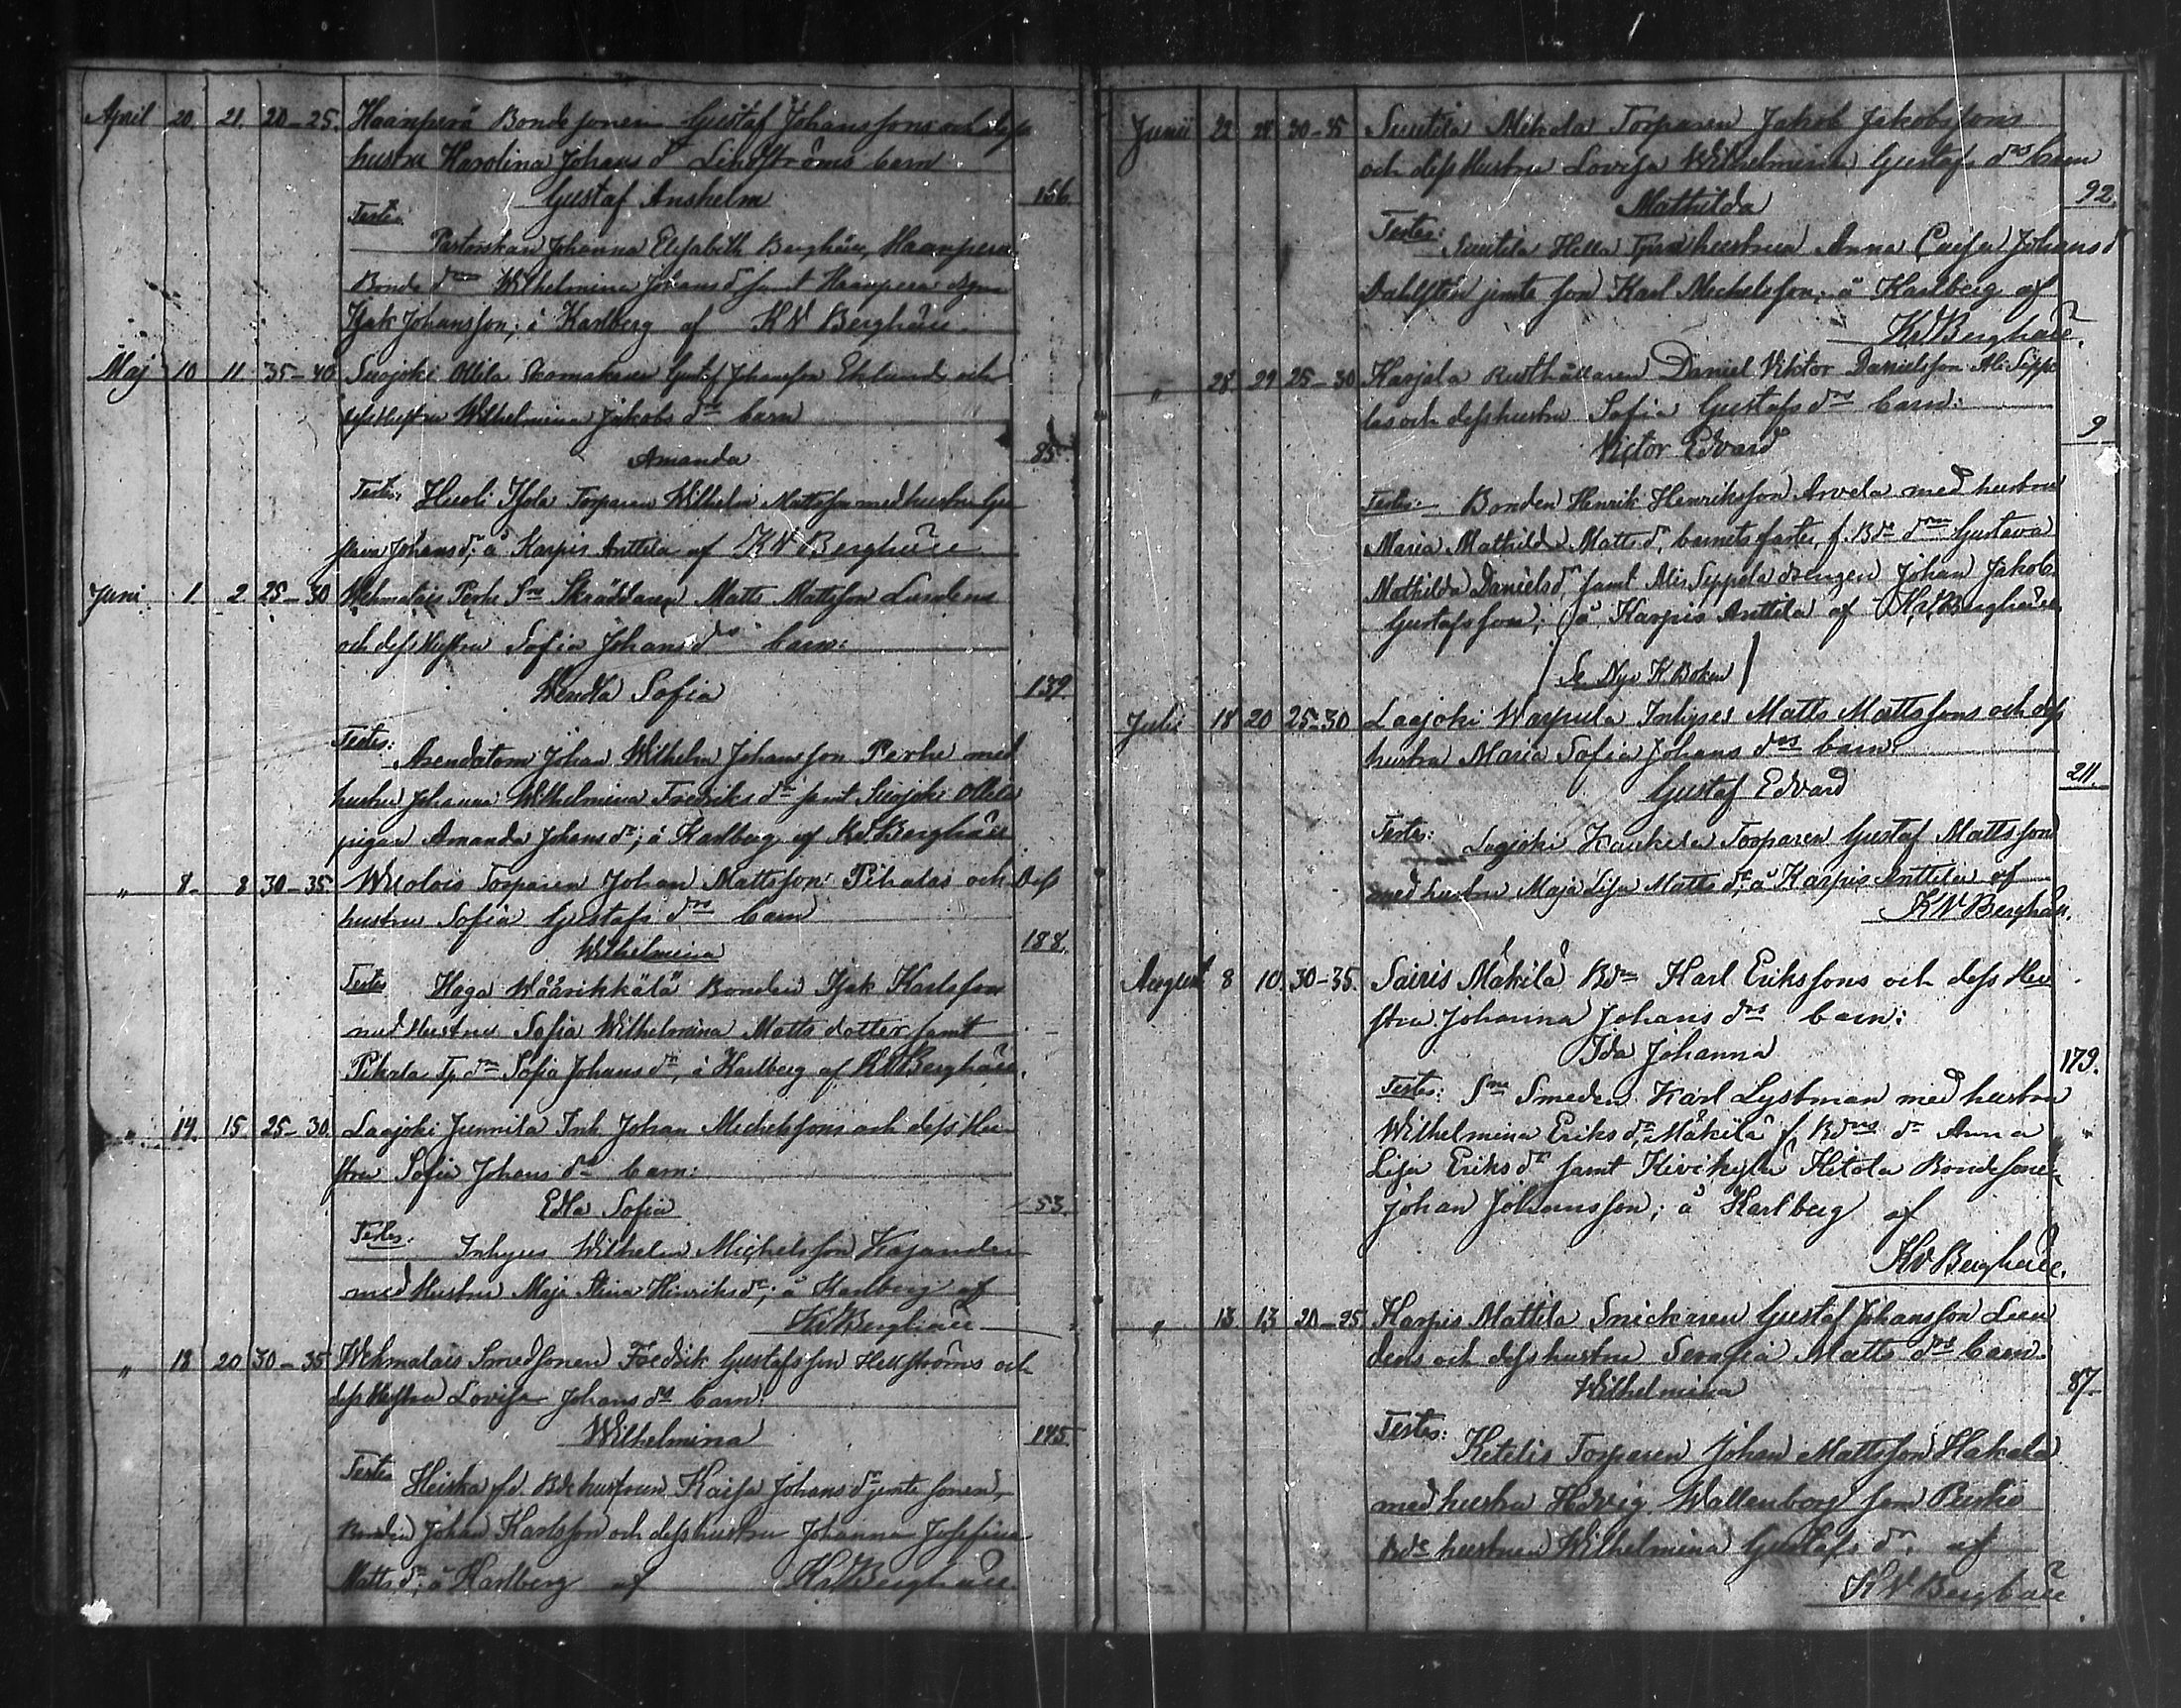 April 20. 21. 20-25. Haanperä Bondesonen Gustaf Johanssons och dess
hustru Karolina Johans dr Lindströms barn
Gustaf Anshelm 156
Testes:
Pastorskan Johanna Elisabeth Berghäll, Haanperä
Bonde dn Wilhelmina Johans dr samt Haanperä
Isak Johansson; å Karlberg af KW Berghäll
Maj 10 11 35-40 Suojoki Ollila Skomakaren Gustaf Johansson Eklunds och
dess Hustru Wilhelmina Jakobs drs barn
Amanda 85
Testes: Huoli Isola Torparen Wilhelm Mattsson med hustru Gu
stava Johans dr; å Karpis Anttila af KW Berghäll
Juni 1. 2 25-30 Wehmalais Perhe Sn Skräddaren Matts Mattsson Lindens
och dess Hustru Sofia Johans drs barn:
Wendla Sofia 139.
Testes:
Arendatorn Johan Wilhelm Johansson Perhe med
hustru Johanna Wilhelmina Fredriks dr samt Suojoki Ollila
pigan Amanda Johans dr; å Karlberg af KW Berghäll
" 8. 8 30-35 Torparen Johan Mattsson Pihalas och dess
hustru Sofia Gustafs drs barn
Wilhelmina 188.
Testes Haga Wäärikkälä Bonden Isak Karlsson
med Hustru Sofia Wilhelmina Matts dotter samt
Pihala Tp dn Sofia Johans dr; å Karlberg af KW Berghäll.
" 14. 15. 25-30 Laajoki Junnila Inh. Johan Michelssons och dess Hu
stru Sofia Johans drs barn:
Edla Sofia 53.
Testes:
Inhyses Wilhelm Michelsson Kajander
med Hustru Maja Stina Hinriks dr; å Karlberg af
KW Berghäll
" 18 20 30-35 Wehmalais Smedsonen Fredrik Gustafsson Hellströms och
dess Hustru Lovisa Johans drs barn:
Wilhelmina 145.
Testes Heiska fd. Bde hustrun Kaisa Johans dr jemte sonen,
Bonden Johan Karlsson och dess hustru Johanna Josefina
Matts dr; å Karlberg af KW Berghäll.
Junii 22 24 30-35 Suutila Mikola Torparen Jakob Jakobssons
och dess Hustru Lovisa Wilhelmina Gustafs drs barn
92.
Mathilda
Testes: Suutila Hella hustrun Anna Caisa Johans dr
Dahlsten jemte son Karl Michelsson; å Karlberg af
KW Berghäll.
" 28. 29 25-30 Karjala Rusthållaren Daniel Viktor Danielsson Ali Seppä
läs och dess hustru Sofia Gustafs drs barn:
9
Victor Edvard
Testes: Bonden Henrik Henriksson Arvela med hustru
Maria Mathilda Matts dr, barnets faster, f. Bde dn Gustava
Mathilda Daniels dr, samt Alis Seppälä drengen Johan Jakob
Gustafsson; å Karpis Anttila af KW Berghäll
(Se Nya K Boken)
Julii 18 20 25-30 Laajoki Warpula Inhyses Matts Mattssons och dess
hustru Maria Sofia Johans drs barn:
211.
Gustaf Edvard
Testes: Laajoki Torparen Gustaf Mattsson
med hustru Maja Lisa Matts dr; å Karpis Anttila af
KW Berghäll.
August 8 10. 30-35. Sairis Mäkilä Bdn Karl Erikssons och dess Hu
stru Johanna Johans drs barn:
Ida Johanna
179.
Testes: Sn Smeden Karl Lystman med hustru
Wilhelmina Eriks dr, Mäkilä f. Bdns dr Anna
Lisa Eriks dr samt Kivikylä Ketola Bondesonen
Johan Johansson; å Karlberg af
KW Berghäll.
" 13 13 20-25 Karpis Mattila Snickaren Gustaf Johansson Lin
dens och dess hustru Serafia Matts drs barn:
Wilhelmina 87.
Testes:
Ketelis Torparen Johan Mattsson Hakala
med hustru Hedvig Wallenborg
Bde hustrun Wilhelmina Gustafs dr. af
KW Berghäll